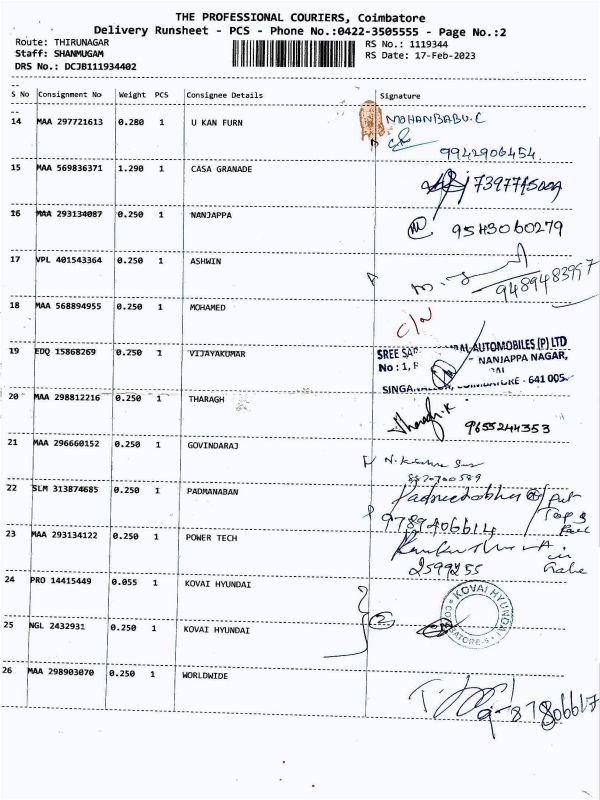 THE PROFESSIONAL COURIERS, Coimbatore
Delivery Runsheet - PCS - Phone No.:0422-3505555 - Page No.:2
Route: THIRUNAGAR RS No.: 1119344
Staff: SHANMUGAM RS Date: 17-Feb-2023
DRS No.: DCJB111934402
S No Consignment No Weight PCS Consignee Details Signature
14 MAA 297721613 0.280 1 U KAN FURN MOHANBABU.C
9942906454
15 MAA 569836371 1.290 1 CASA GRANADE
16 MAA 293134087 0.250 1 NANJAPPA 9543060279
17 VPL 401543364 0.250 1 ASHWIN
9489483997
18 MAA 568894955 0.250 1 MOHAMED
19 EDQ 15868269 0.250 1 VIJAYAKUMAR
SREE AUTOMOBILES (P) LTD
No : 1, NANJAPPA NAGAR,
641 005
20 MAA 298812216 0.250 1 THARAGH Tharagh.K 9655244353
21 MAA 296660152 0.250 1 GOVINDARAJ
22 SLM 313874685 0.250 1 PADMANABAN
9789406614
23 MAA 293134122 0.250 1 POWER TECH
2599255
24 PRO 14415449 0.055 1 KOVAI HYUNDAI
KOVAI HYUNDAI
25 NGL 2432931 0.250 1 KOVAI HYUNDAI 2
26 MAA 298903070 0.250 1 WORLDWIDE